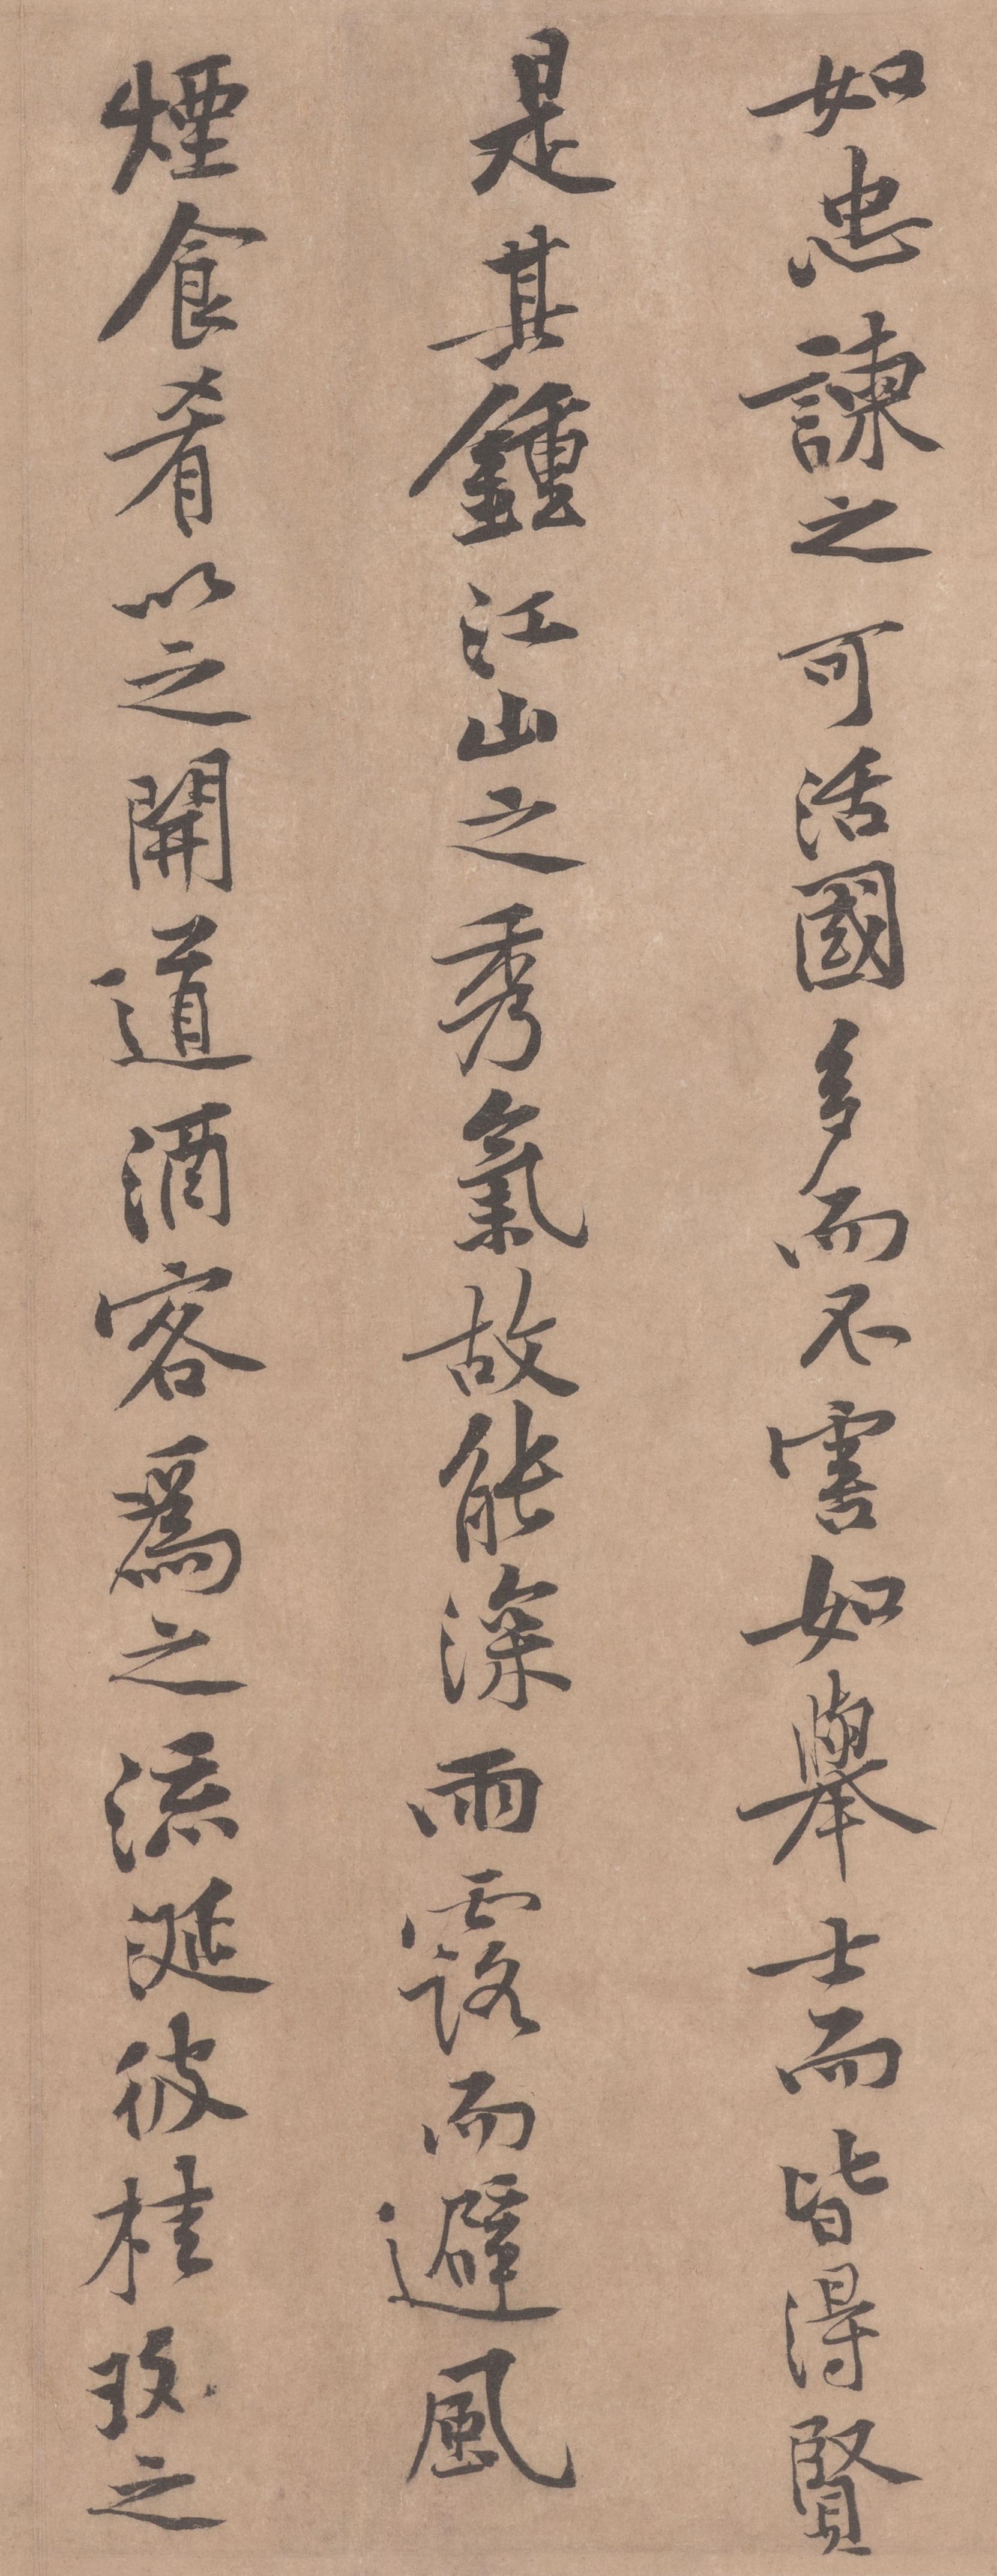 如忠諫之可活國多而不害如舉士而皆得賢
是其鍾江山之秀氣故能深雨露而避風
煙食肴以之開道酒客為之流涎彼桂玫之